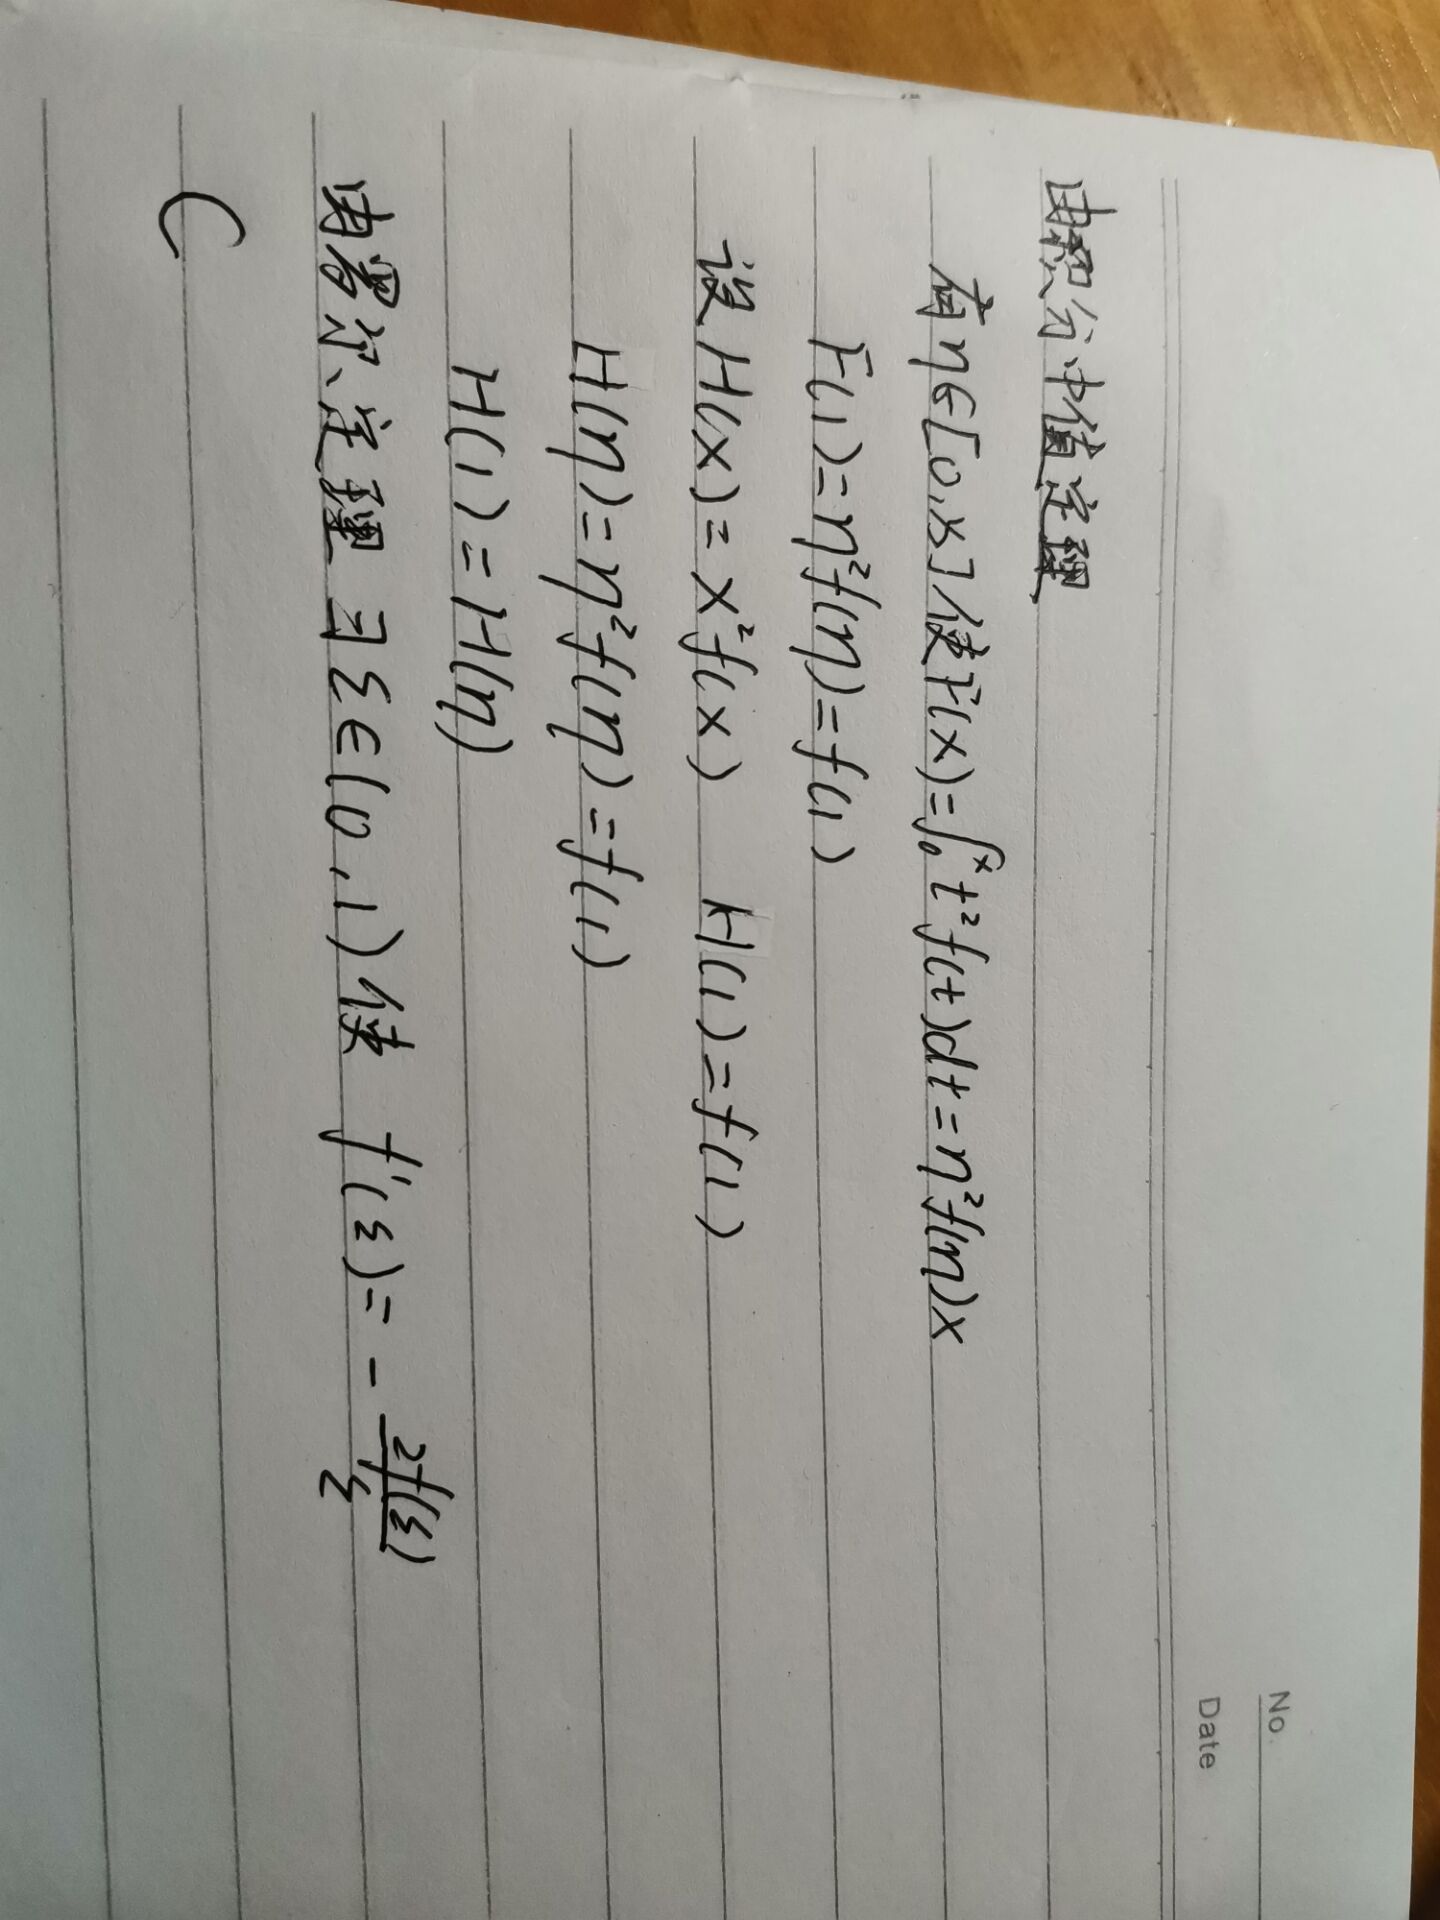 No.
Date
由积分中值定理
有η∈[0,x]使F(x)=∫₀ˣt²f(t)dt=η²f(η)x
F(1)=η²f(η)=f(1)
设H(x)=x²f(x) H(1)=f(1)
H(η)=η²f(η)=f(1)
H(1)=H(η)
由罗尔定理∃ξ∈(0,1)使 f'(ξ)=-2f(ξ)/ξ
C